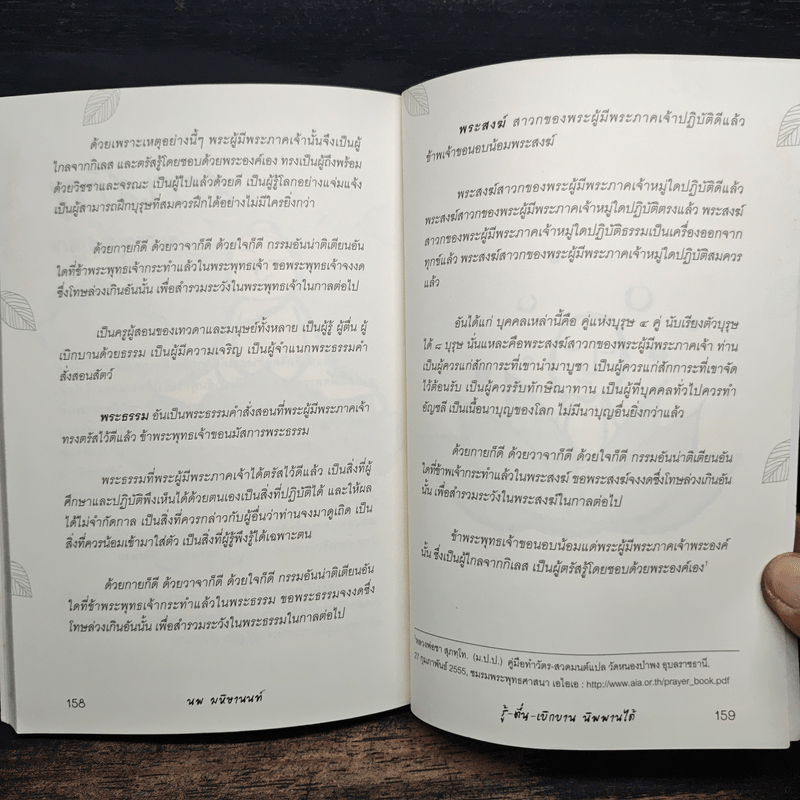 ด้วยเพราะเหตุอย่างนี้ๆ พระผู้มีพระภาคเจ้านั้นจึงเป็นผู้
ไกลจากกิเลส และตรัสรู้โดยชอบด้วยพระองค์เอง ทรงเป็นผู้ถึงพร้อม
ด้วยวิชชาและจรณะ เป็นผู้ไปแล้วด้วยดี เป็นผู้รู้โลกอย่างแจ่มแจ้ง
เป็นผู้สามารถฝึกบุรุษที่สมควรฝึกได้อย่างไม่มีใครยิ่งกว่า
ด้วยกายก็ดี ด้วยวาจาก็ดี ด้วยใจก็ดี กรรมอันน่าติเตียนอัน
ใดที่ข้าพระพุทธเจ้ากระทำแล้วในพระพุทธเจ้า ขอพระพุทธเจ้าจงงด
ซึ่งโทษล่วงเกินอันนั้น เพื่อสำรวมระวังในพระพุทธเจ้าในกาลต่อไป
เป็นครูผู้สอนของเทวดาและมนุษย์ทั้งหลาย เป็นผู้รู้ ผู้ตื่น ผู้
เบิกบานด้วยธรรม เป็นผู้มีความเจริญ เป็นผู้จำแนกพระธรรมคำ
สั่งสอนสัตว์
พระธรรม อันเป็นพระธรรมคำสั่งสอนที่พระผู้มีพระภาคเจ้า
ทรงตรัสไว้ดีแล้ว ข้าพระพุทธเจ้าขอนมัสการพระธรรม
พระธรรมที่พระผู้มีพระภาคเจ้าได้ตรัสไว้ดีแล้ว เป็นสิ่งที่ผู้
ศึกษาและปฏิบัติพึงเห็นได้ด้วยตนเองเป็นสิ่งที่ปฏิบัติได้ และให้ผล
ได้ไม่จำกัดกาล เป็นสิ่งที่ควรกล่าวกับผู้อื่นว่าท่านจงมาดูเถิด เป็น
สิ่งที่ควรน้อมเข้ามาใส่ตัว เป็นสิ่งที่ผู้รู้พึงรู้ได้เฉพาะตน
ด้วยกายก็ดี ด้วยวาจาก็ดี ด้วยใจก็ดี กรรมอันน่าติเตียนอัน
ใดที่ข้าพระพุทธเจ้ากระทำแล้วในพระธรรม ขอพระธรรมจงงดซึ่ง
โทษล่วงเกินอันนั้น เพื่อสำรวมระวังในพระธรรมในกาลต่อไป
158
นพ มหิษานนท์
พระสงฆ์ สาวกของพระผู้มีพระภาคเจ้าปฏิบัติดีแล้ว
ข้าพเจ้าขอนอบน้อมพระสงฆ์
พระสงฆ์สาวกของพระผู้มีพระภาคเจ้าหมู่ใดปฏิบัติดีแล้ว
พระสงฆ์สาวกของพระผู้มีพระภาคเจ้าหมู่ใดปฏิบัติตรงแล้ว พระสงฆ์
สาวกของพระผู้มีพระภาคเจ้าหมู่ใดปฏิบัติธรรมเป็นเครื่องออกจาก
ทุกข์แล้ว พระสงฆ์สาวกของพระผู้มีพระภาคเจ้าหมู่ใดปฏิบัติสมควร
แล้ว
อันได้แก่ บุคคลเหล่านี้คือ คู่แห่งบุรุษ ๔ คู่ นับเรียงตัวบุรุษ
ได้ ๘ บุรุษ นั่นแหละคือพระสงฆ์สาวกของพระผู้มีพระภาคเจ้า ท่าน
เป็นผู้ควรแก่สักการะที่เขานำมาบูชา เป็นผู้ควรแก่สักการะที่เขาจัด
ไว้ต้อนรับ เป็นผู้ควรรับทักษิณาทาน เป็นผู้ที่บุคคลทั่วไปควรทำ
อัญชลี เป็นเนื้อนาบุญของโลก ไม่มีนาบุญอื่นยิ่งกว่าแล้ว
ด้วยกายก็ดี ด้วยวาจาก็ดี ด้วยใจก็ดี กรรมอันน่าติเตียนอัน
ใดที่ข้าพเจ้ากระทำแล้วในพระสงฆ์ ขอพระสงฆ์จงงดซึ่งโทษล่วงเกินอัน
นั้น เพื่อสำรวมระวังในพระสงฆ์ในกาลต่อไป
ข้าพระพุทธเจ้าขอนอบน้อมแด่พระผู้มีพระภาคเจ้าพระองค์
นั้น ซึ่งเป็นผู้ไกลจากกิเลส เป็นผู้ตรัสรู้โดยชอบด้วยพระองค์เอง¹
¹หลวงพ่อชา สุภทฺโท. (ม.ป.ป.) คู่มือทำวัตร-สวดมนต์แปล วัดหนองป่าพง อุบลราชธานี.
27 กุมภาพันธ์ 2555, ชมรมพระพุทธศาสนา เอไอเอ : http://www.aia.or.th/prayer_book.pdf
รู้-ตื่น-เบิกบาน นิพพานได้
159